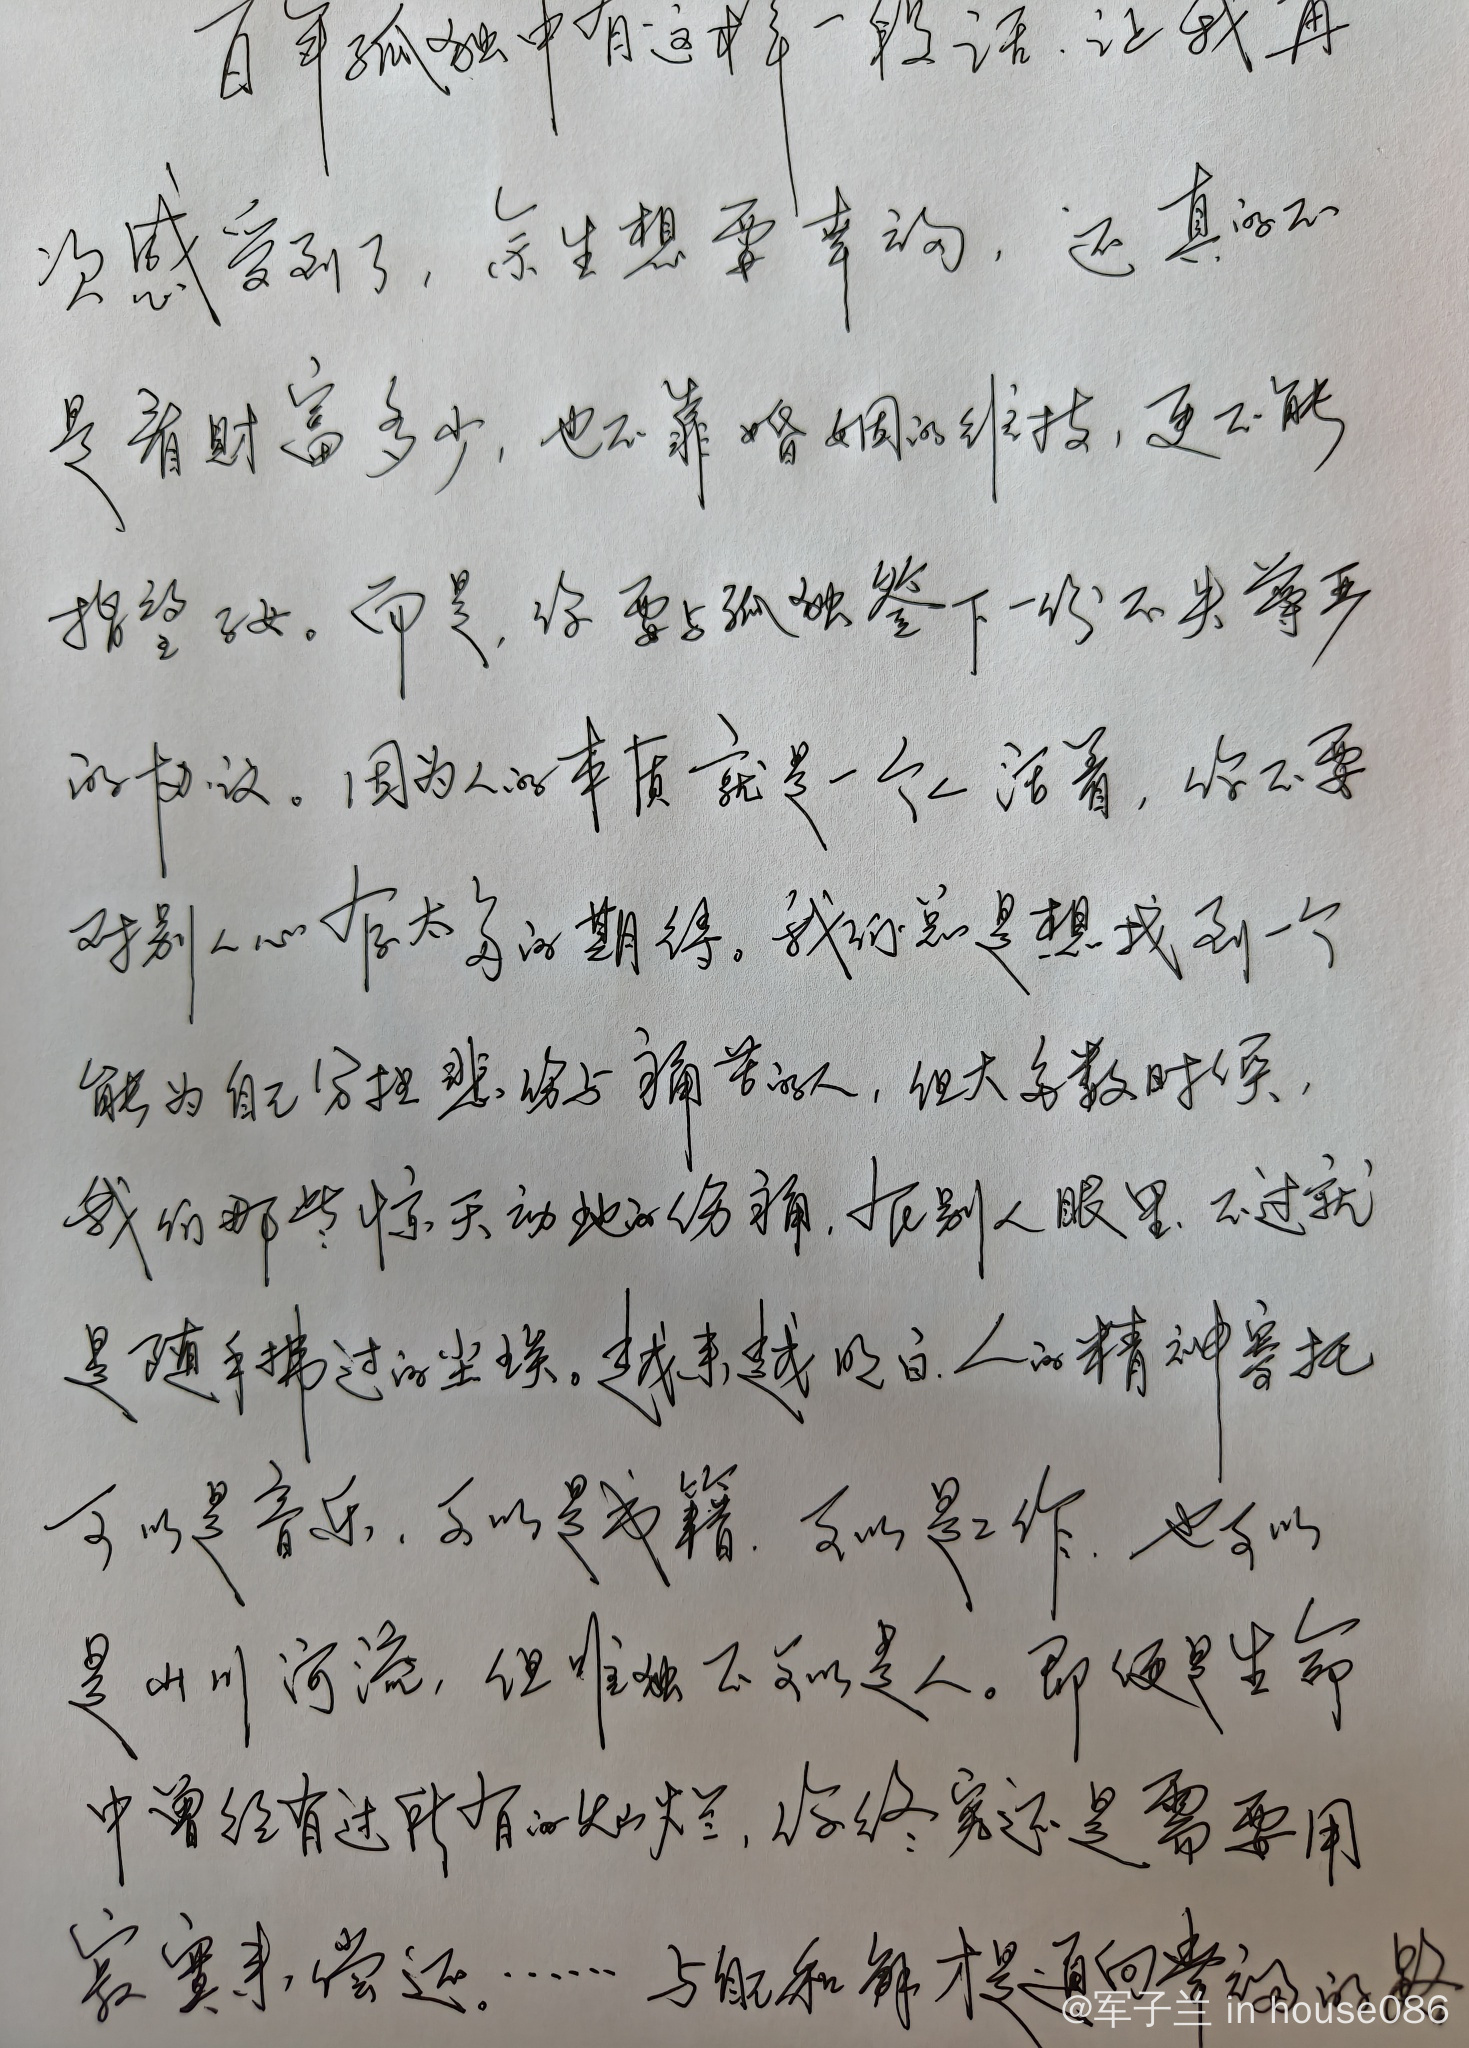 百年孤独中有这样一段话.让我再
次感受到了,余生想要幸福,还真的不
是看财富多少,也不靠婚姻的维持,更不能
指望子女。而是,你要与孤独签下一份不失尊严
的协议。因为人的本质就是一个人活着,你不要
对别人心存太多的期待。我们总是想找到一个
能为自己分担悲伤与痛苦的人,但大多数时候,
我们那些惊天动地的伤痛,在别人眼里.不过就
是随手拂过的尘埃。越来越明白.人的精神寄托
可以是音乐.可以是书籍.可以是工作.也可以
是山川河流,但唯独不可以是人。即便是生命
中曾经有过所有的灿烂,你终究还是需要用
寂寞来偿还。……与自己和解才是通向幸福的路
@军子兰 in house086